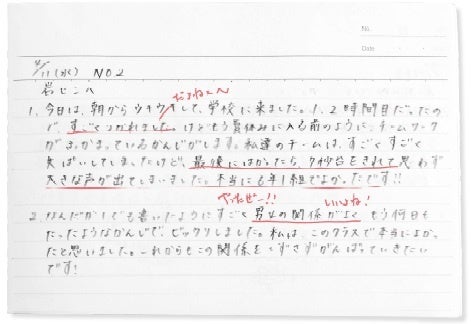 No.
Date
4/11(水) NO.2
岩センへ
だよね〜へ
1、今日は、朝からウキウキして、学校に来ました。1、2時間目だったの
で、すごくつかれました。けどもう夏休みに入る前のように、チームワーク
がよかっているかんじがします。私達のチームは、すごくすごく
しましたけど、最後にはかったら、7秒台をきれて思わず
大きな声が出てしまいました。本当にも6年1組でよかったです!!
やったぜー!! いいよね!
2、なんだか1でも書いたようにすごく男女の関係がよく、もう何日も
たったようなかんじで、ビックリしました。私は、このクラスで本当によかっ
たと思いました。これからもこの関係をくずさずがんばっていきたい
です!